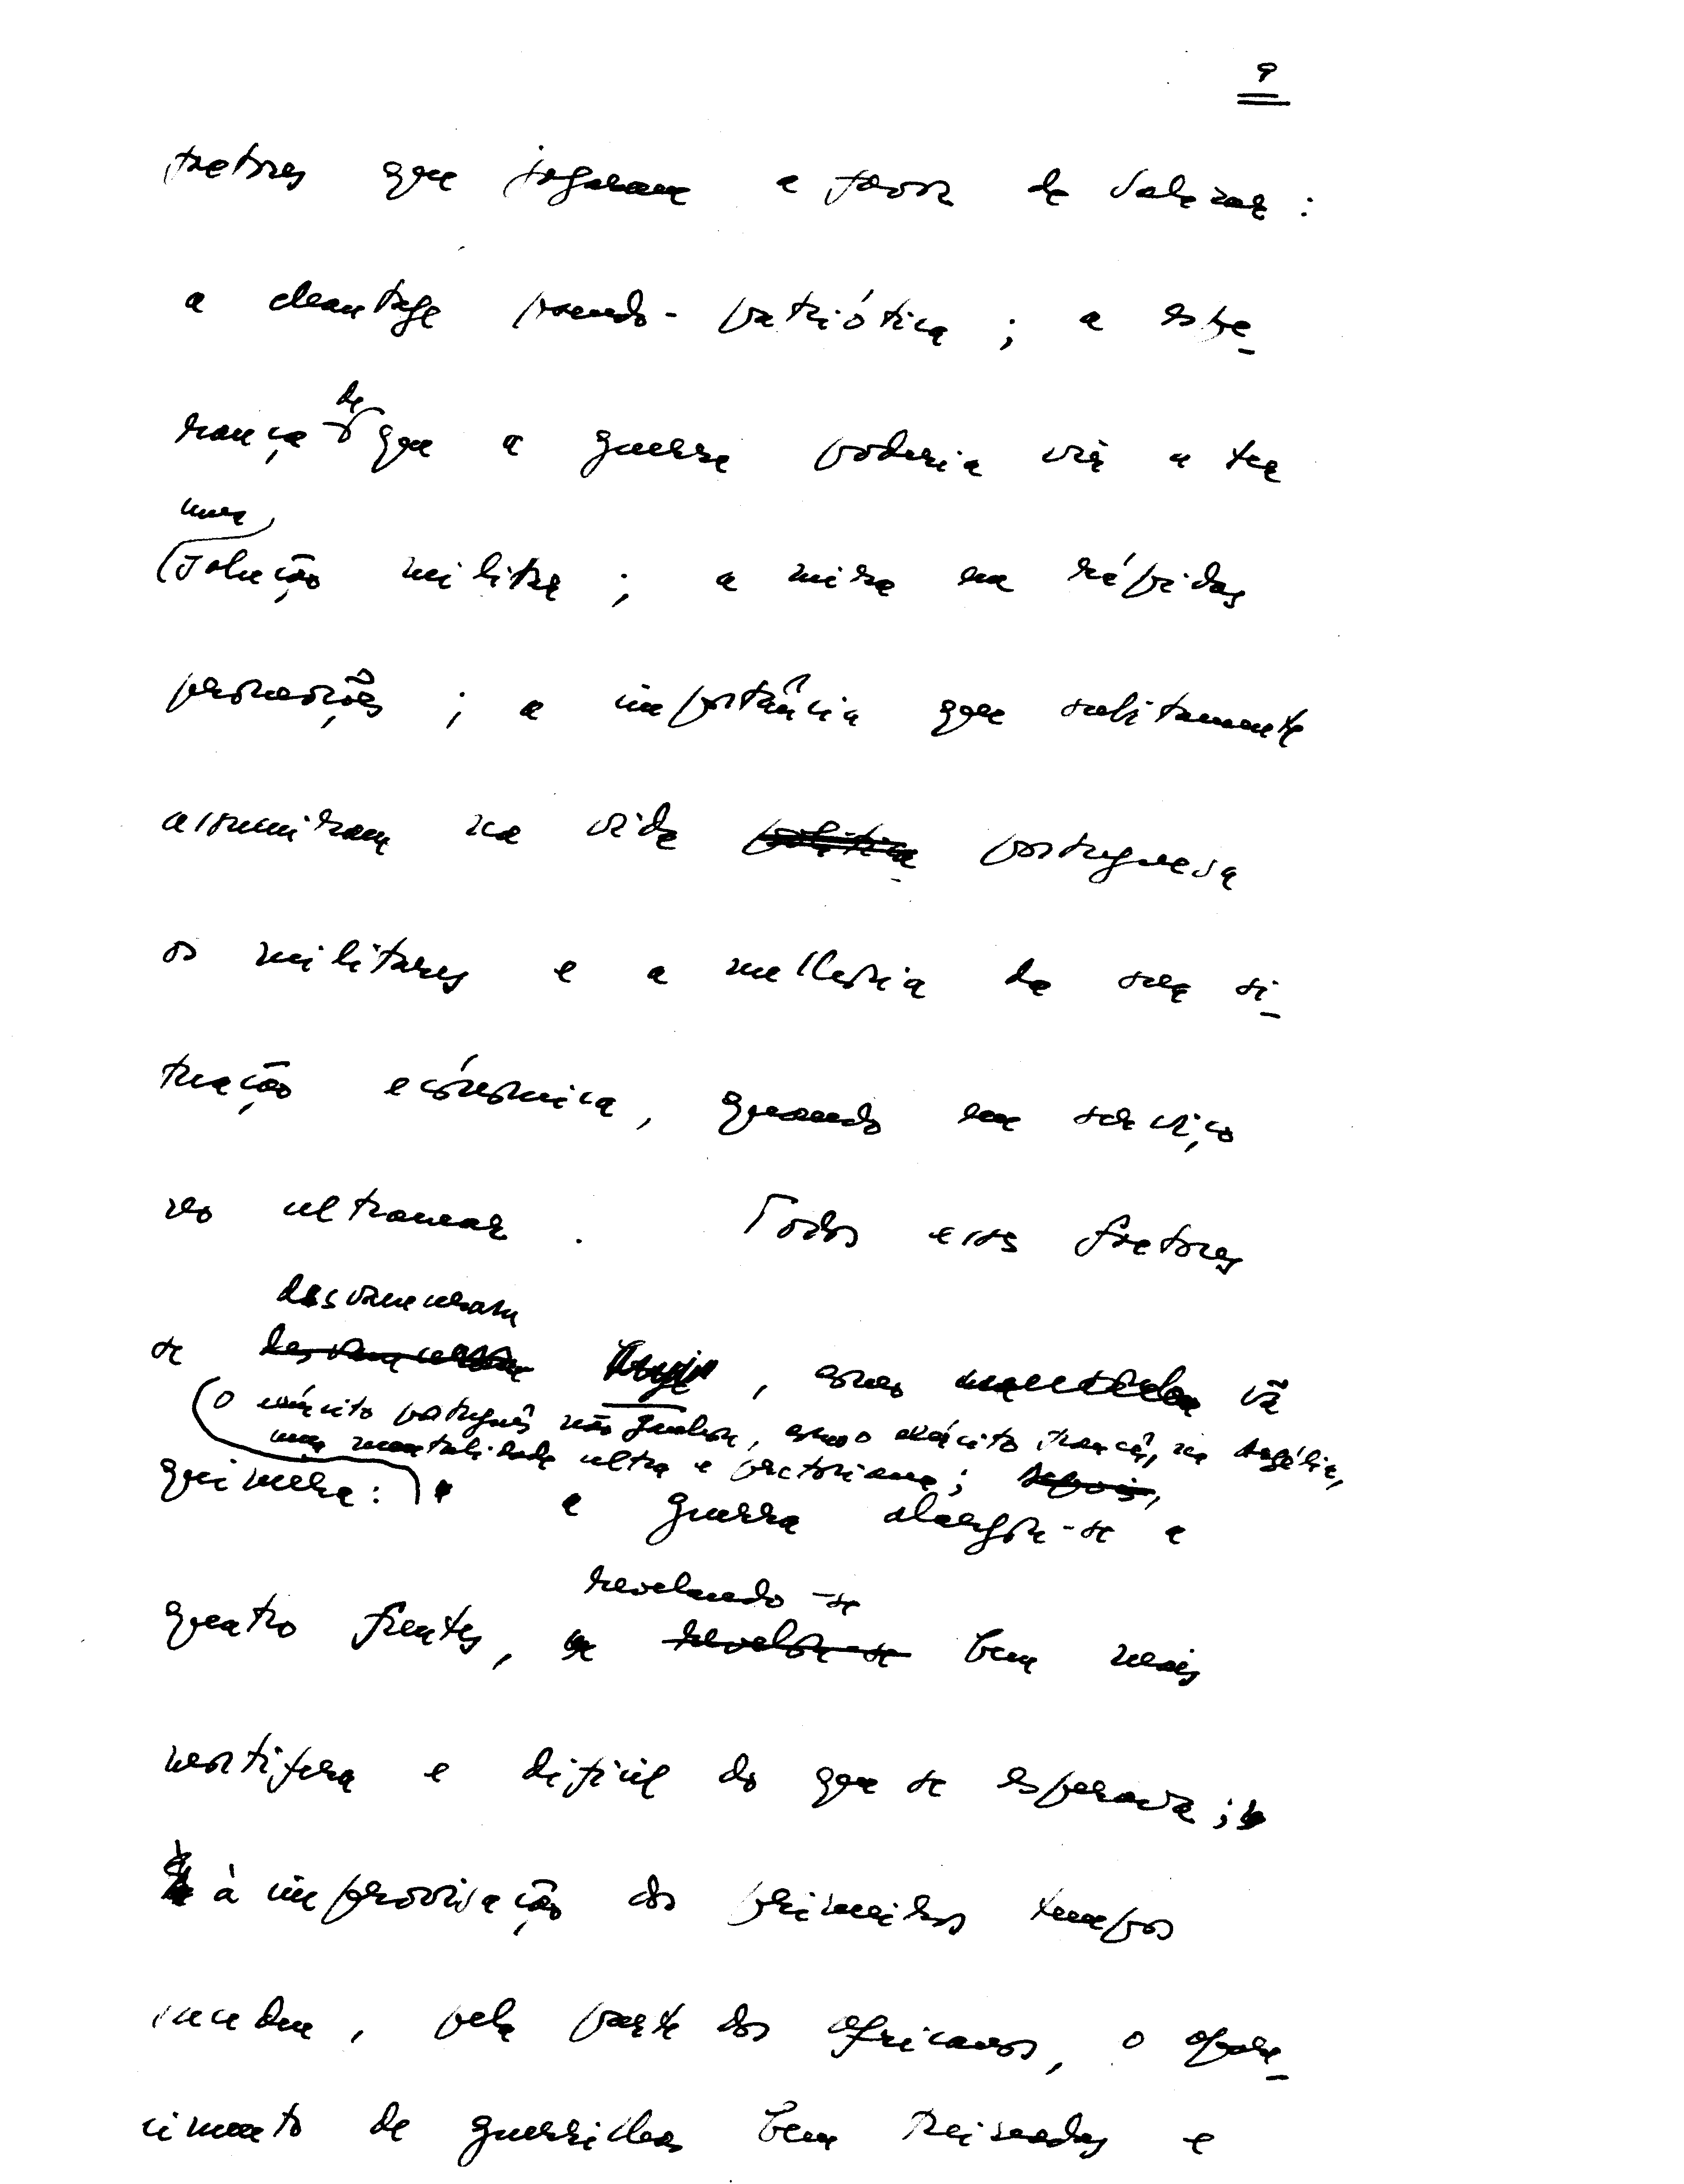 9
factores que jogaram a favor de Salazar :
a chantage pseudo-patriótica ; a espe-
de
rança que a guerra poderia vir a ter
uma
solução militar ; a mira em rápidas
promoções ; a importância que subitamente
assumiram na vida política portuguesa
os militares e a melhoria da sua si-
tuação económica, quando em serviço
no ultramar . Todos esses factores
desvaneceram
se hoje , como vã
O exército português não ganhou, como o exército francês, na Argélia,
uma mentalidade ultra e pretoriana ; depois,
quimera : a guerra alargou-se a
revelando-se
quatro frentes, e revelou-se bem mais
mortífera e difícil do que se esperava ;
à improvisação dos primeiros tempos
sucedeu, pela parte dos africanos, o apare-
cimento de guerrilhas bem treinadas e